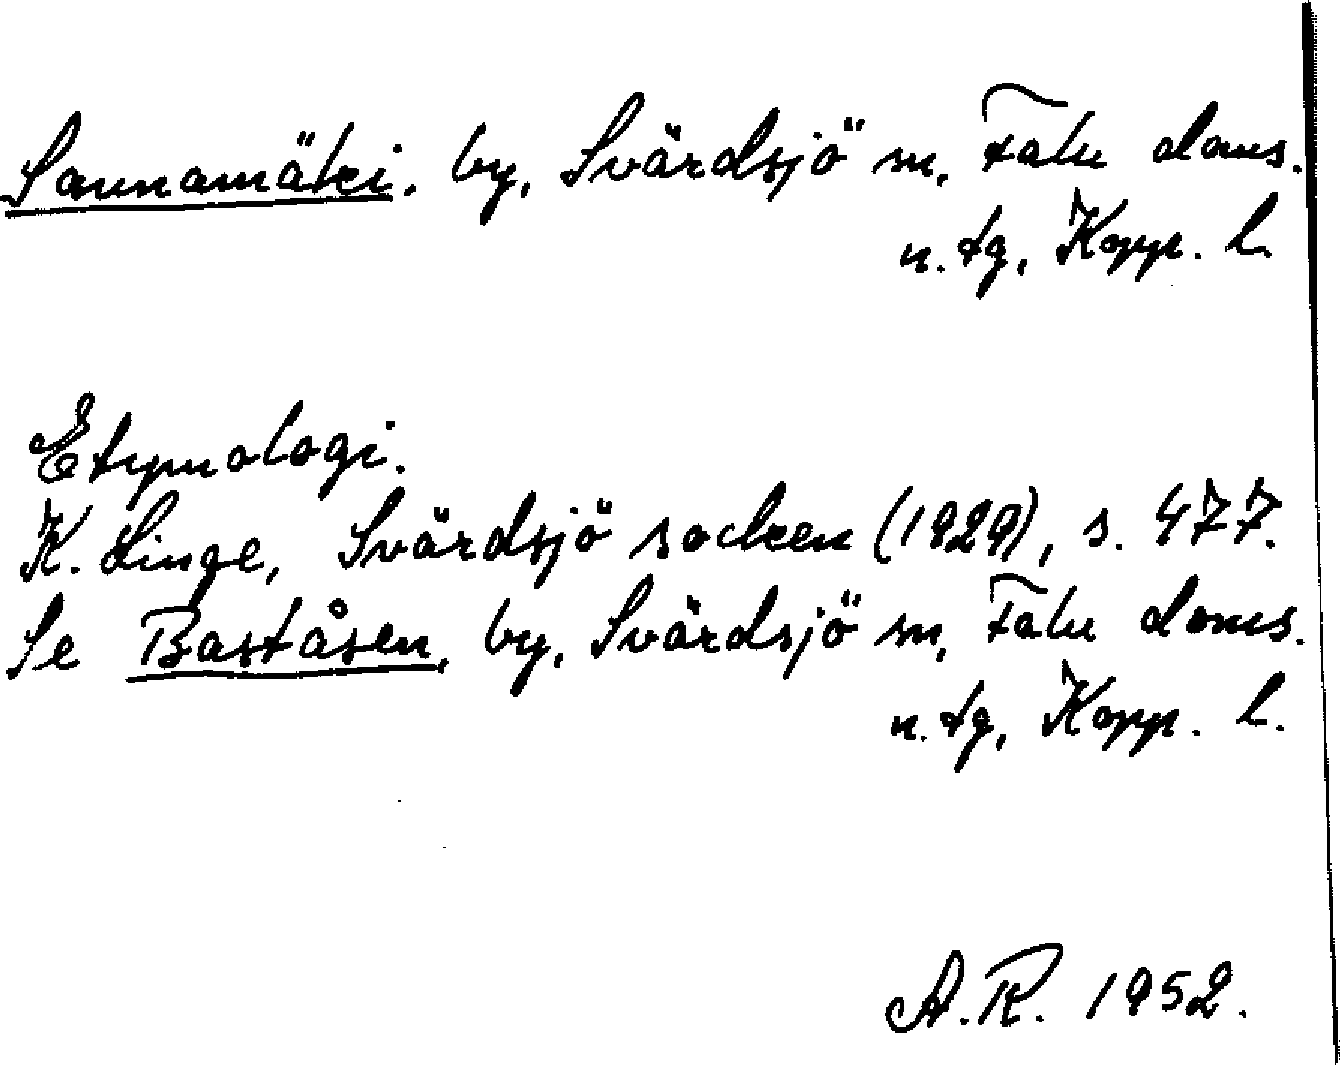 Saunamäki. by, Svärdsjö sn, Falu doms.
n. tg, Kopp. l.
Etymologi.
K. Linge, Svärdsjö socken (1929), s. 477.
Se Baståsen, by, Svärdsjö sn, Falu doms.
n. tg, Kopp. l.
A.R. 1952.